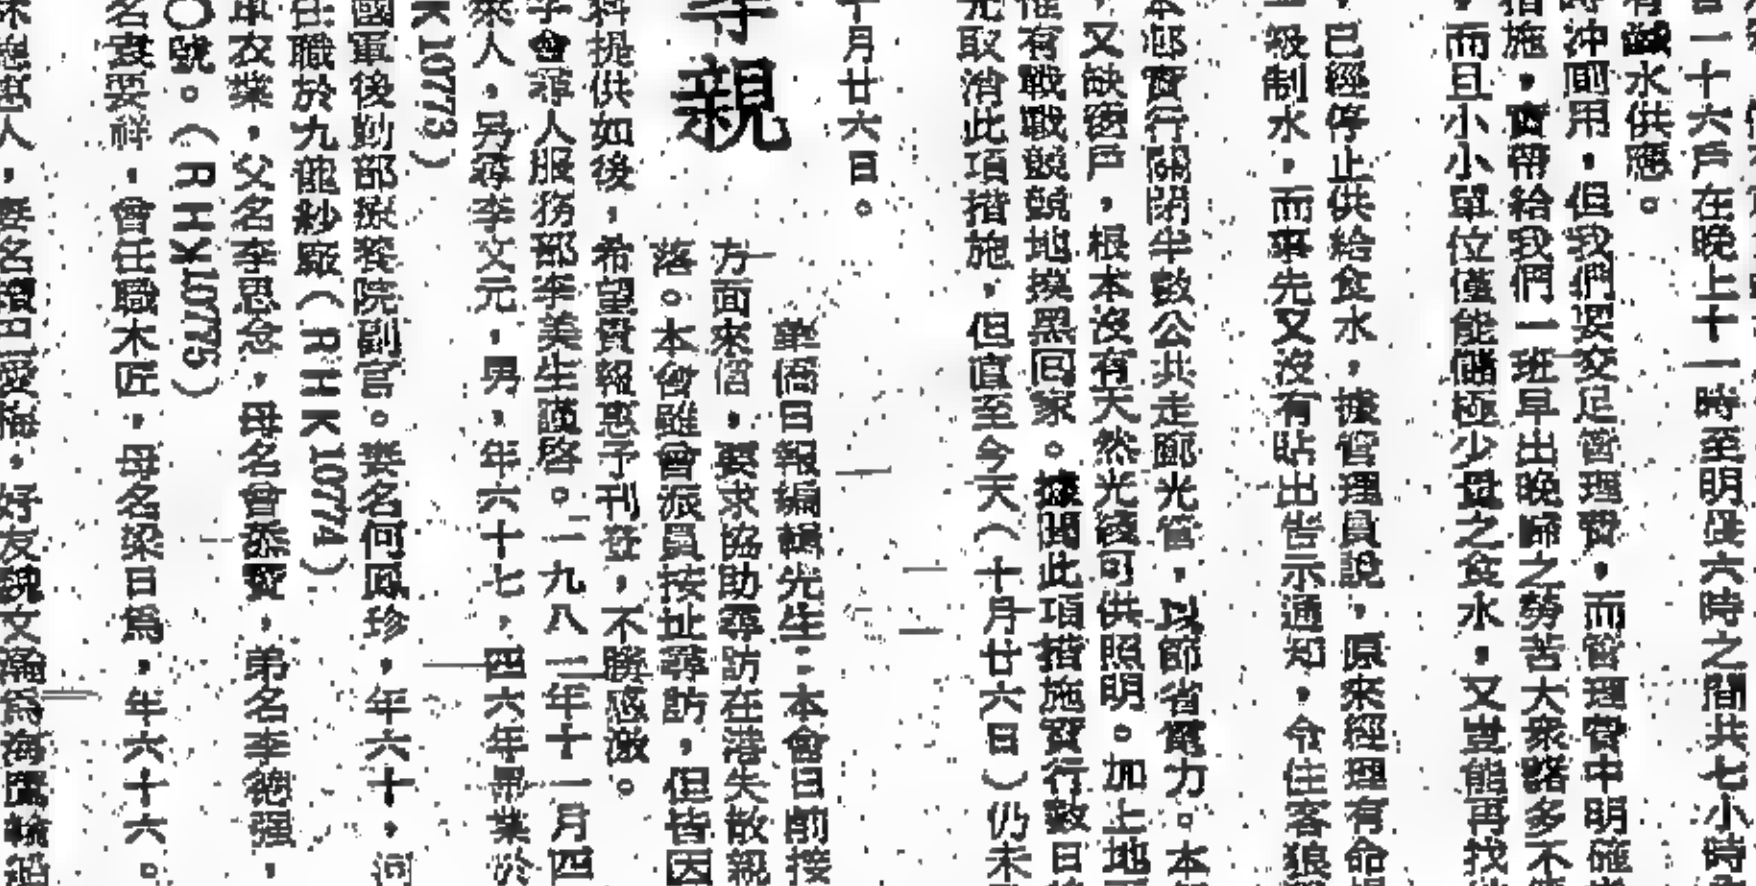 一十六戶在晚上十一時至明晨六時之間共七小時
有鹹水供應。
時沖廁用，但我們要交足管理費，而管理費中明確
措施，實帶給我們一班早出晚歸之勞苦大衆諸多不
，而且小小單位僅能儲極少量之食水，又豈能再找
，已經停止供給食水，據管理員說，原來經理有命
級制水，而事先又沒有貼出告示通知，令住客狼
本邨實行關閉半數公共走廊光管，以節省電力。本
，又缺窗戶，根本沒有天然光綫可供照明。加上地
有戰戰兢兢地摸黑回家。據聞此項措施實行數日
取消此項措施，但直至今天（十月廿六日）仍未
十月廿六日。
尋親
華僑日報編輯先生：本會日前接
方面來信，要求協助尋訪在港失散親
落。本會雖曾派員按址尋訪，但皆因
料提供如後，希望貴報惠予刊登，不勝感激。
字會尋人服務部李美生謹啓。一九八二年十一月四
來人，另尋李文元，男，年六十七，四六年畢業於
K10773）
國軍後勤部療養院副官。妻名何鳳珍，年六十，河
任職於九龍紗廠（RHK10774）
車衣業，父名李思念，母名曾添賢，弟名李德强，
〇號。（RHK10775）
名袁要祥，曾任職木匠，母名梁日爲，年六十六。
人，妻名